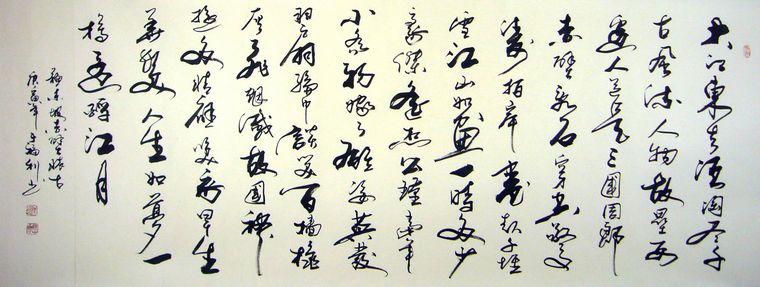 大江東去浪淘尽千
古風流人物故壘西
邊人道是三國周郎
赤壁乱石穿空驚
涛拍岸卷起千堆
雪江山如画一時多少
豪傑遙想公瑾當年
小喬初嫁了雄姿英發
羽扇綸巾談笑间檣櫓
灰飛煙滅故國神
遊多情應笑我早生
華髮人生如夢一
樽還酹江月
蘇東坡赤壁懷古
庚寅年福利书